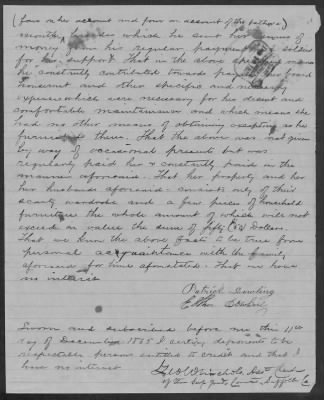 (four on her account and four on account of the father)
monthly, besides which he sent her sums of
money from his regular payments of soldier
for her support that in the above
he constantly contributed towards paying her board
houserent and other specific and necessary
expenses which were necessary for her decent and
comfortable maintenance and which means she
had no other means of obtaining excepting as he
furnished them. That the above was not given
by way of occasional presents but was
regularly paid her & constantly paid in the
manner aforesaid. That her property and her
her husbands aforesaid consists only of their
scanty wardrobe and a few pieces of household
furniture the whole amount of which will not
exceed in value the sum of fifty Dollars.
That we know the above facts to be true from
personal acquaintance with the family
aforesaid for time aforestated. That we have
no interest
Patrick Dowling
Ellen Dowling
Sworn and subscribed before me this 11th
day of December 1865 I certify deponents to be
respectable persons entitled to credit and that I
have no interest
of the Sup. Jud. Court Suffolk Co